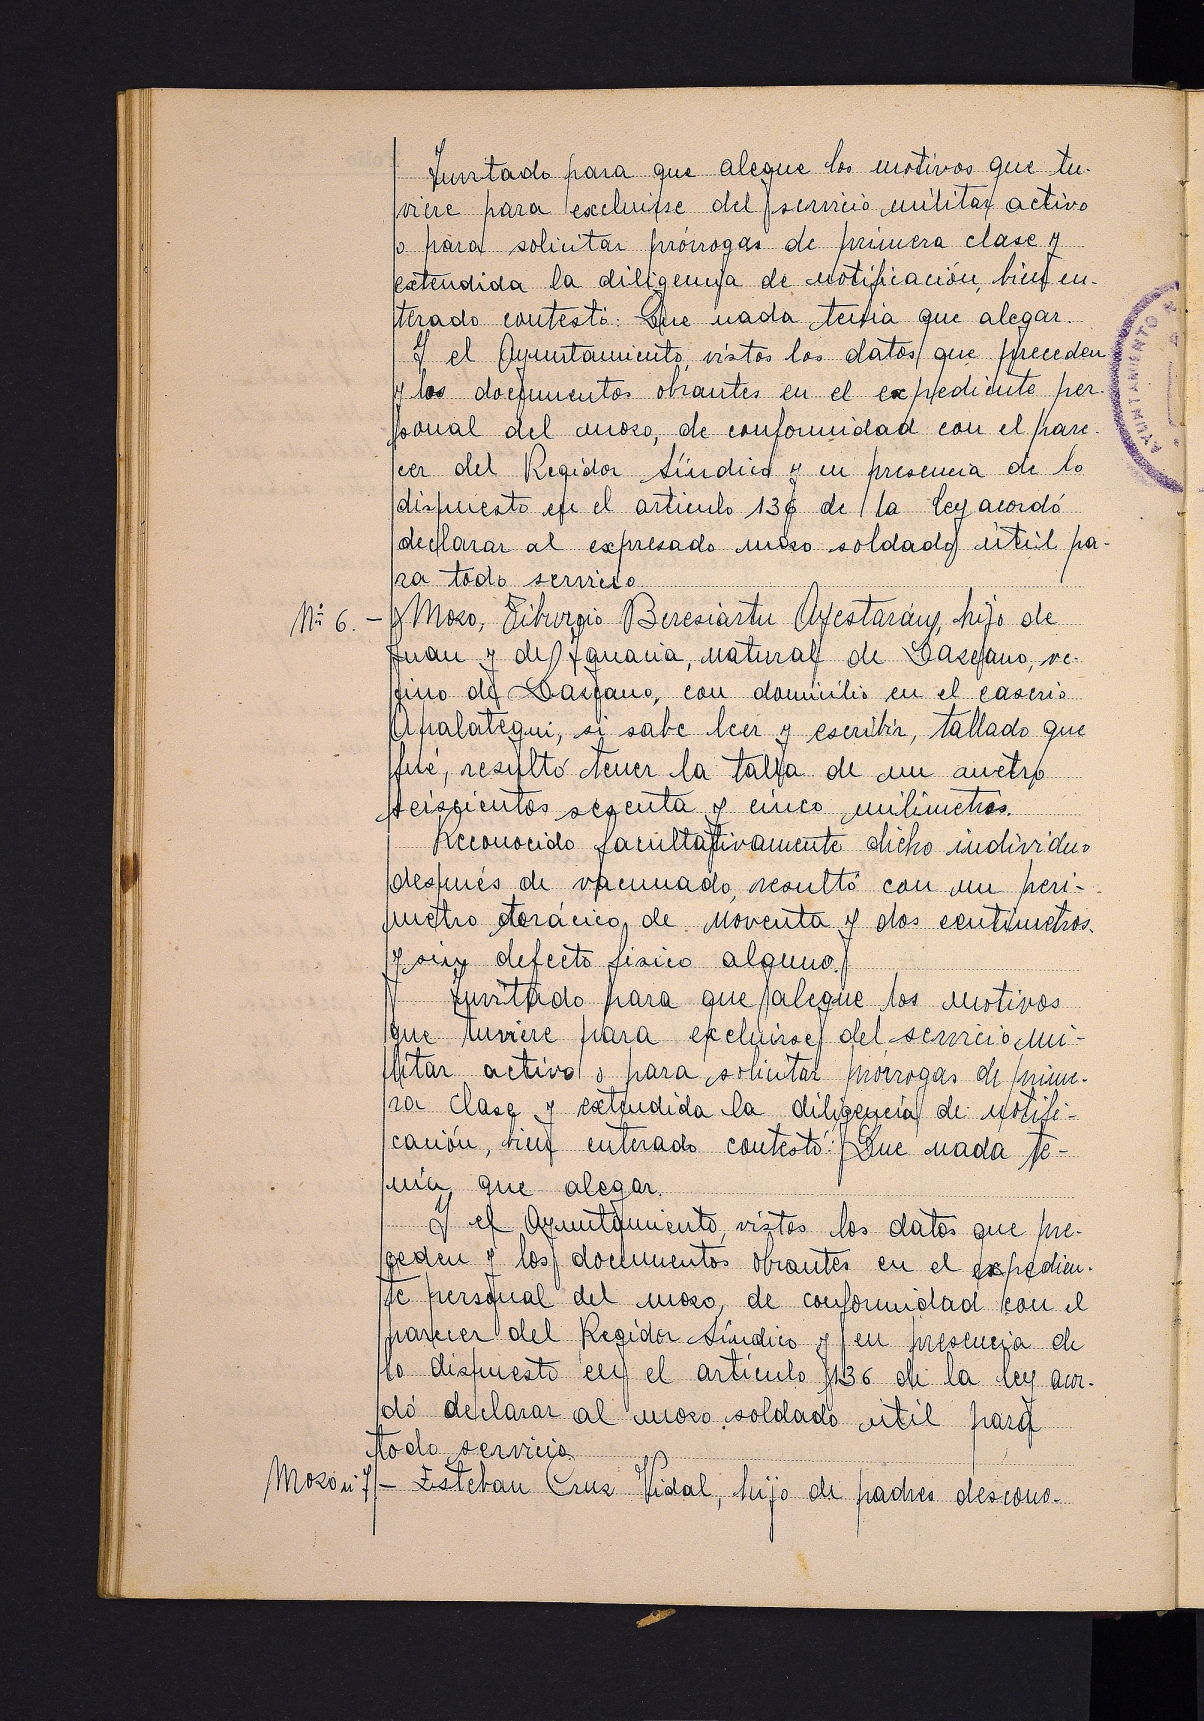 Invitado para que alegue los motivos que tu-
viere para excluirse del servicio militar activo
o para solicitar prórrogas de primera clase y
extendida la diligencia de notificación, bien en-
terado contestó: Que nada tenia que alegar.
Y el Ayuntamiento, vistos los datos que preceden
y los documentos obrantes en el expediente per-
sonal del mozo, de conformidad con el pare-
cer del Regidor Síndico y en presencia de lo
dispuesto en el articulo 136 de la ley acordó
declarar al expresado mozo soldado útil pa-
ra todo servicio.
Nº 6. - Mozo, Tiburcio Beresiartu Ayestarán, hijo de
Juan y de Ignacia, natural de Lazcano, ve-
cino de Lazcano, con domicilio en el caserio
Apalategui, si sabe leer y escribir, tallado que
fué, resultó tener la talla de un metro
seiscientos sesenta y cinco milimetros.
Reconocido facultativamente dicho individuo
después de vacunado, resultó con un perí-
metro torácico de noventa y dos centímetros
y sin defecto fisico alguno.
Invitado para que alegue los motivos
que tuviere para excluirse del servicio mi-
litar activo o para solicitar prórrogas de prime-
ra clase y extendida la diligencia de notifi-
cación, bien enterado contestó: Que nada te-
nía que alegar.
Y el Ayuntamiento, vistos los datos que pre-
ceden y los documentos obrantes en el expedien-
te personal del mozo, de conformidad con el
parecer del Regidor Síndico y en presencia de
lo dispuesto en el artículo 136 de la ley acor-
dó declarar al mozo soldado útil para
todo servicio.
Mozo nº 7 - Esteban Cruz Vidal, hijo de padres descono-
AYUNTAMIENTO